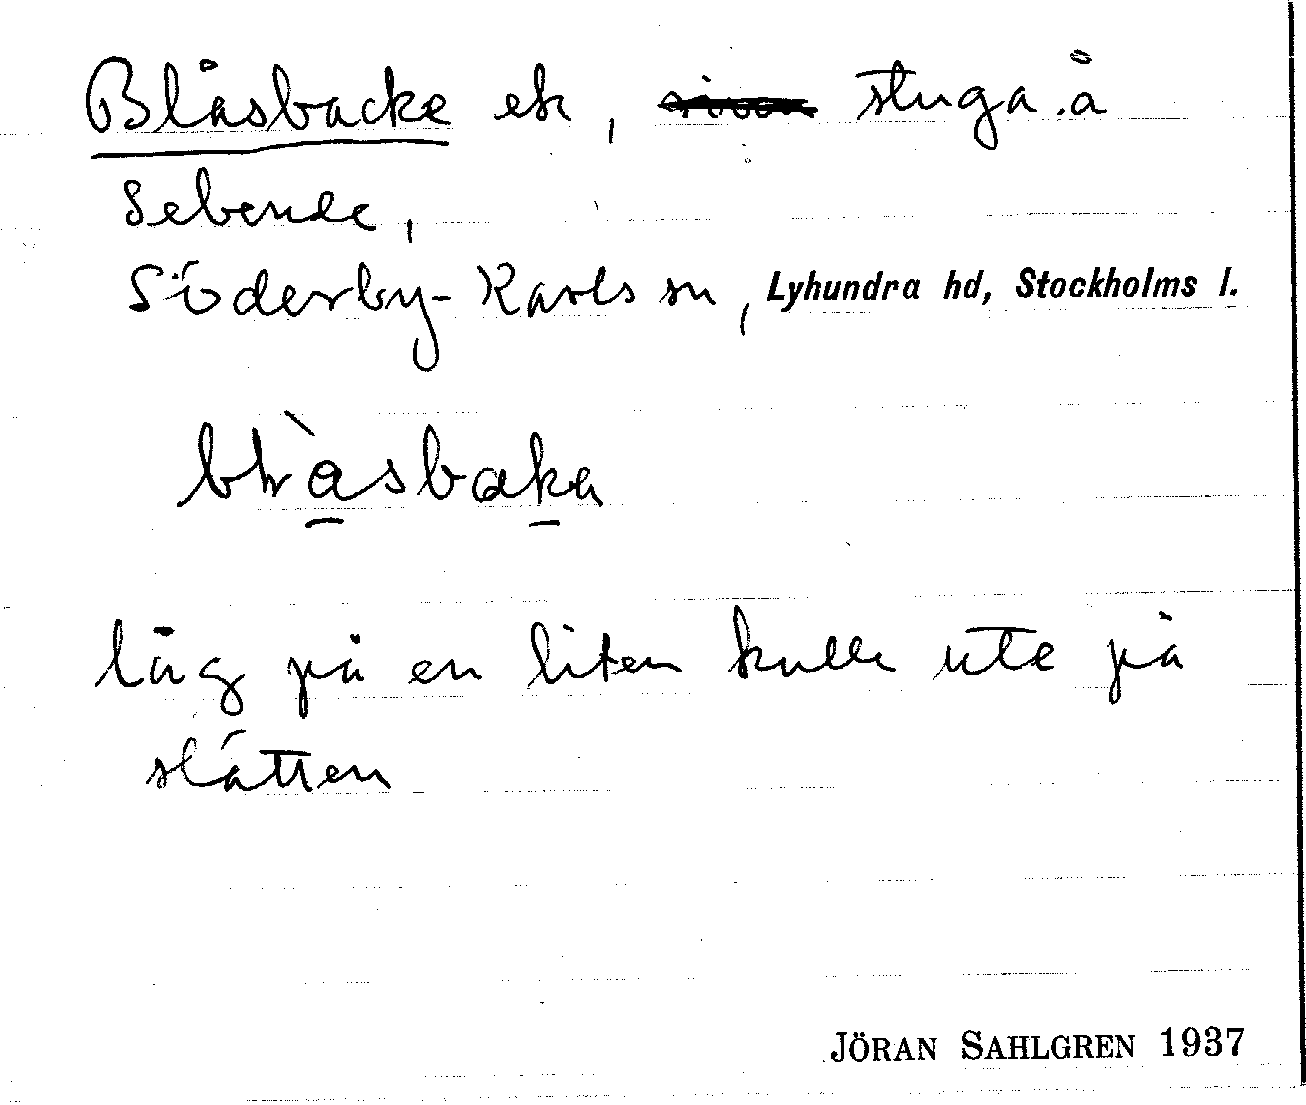 Blåsbacke ek, stuga å
Sebende,
Söderby-Karls sn, Lyhundra hd, Stockholms l.
låg på en liten kulle ute på
slätten
JÖRAN SAHLGREN 1937